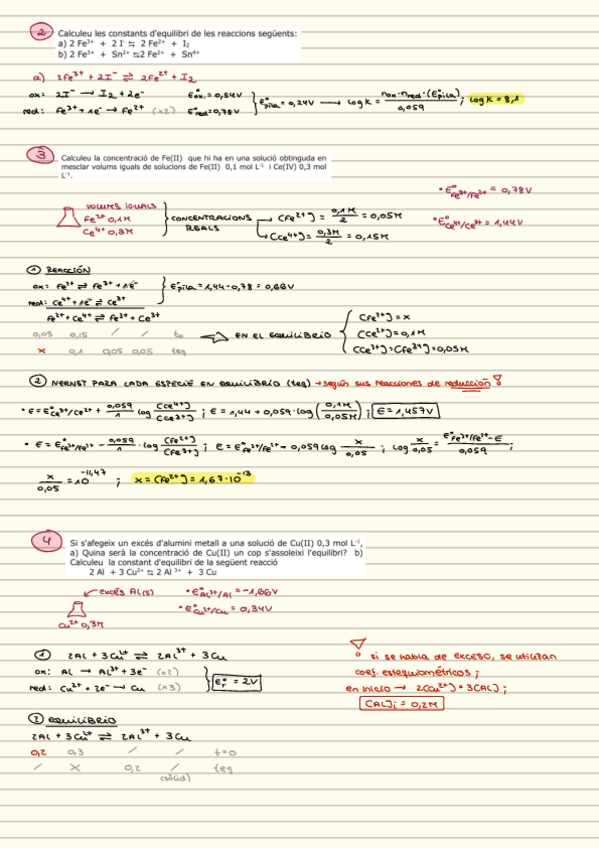 2 Calculeu les constants d'equilibri de les reaccions següents:
a) 2 Fe³⁺ + 2 I⁻ ⇆ 2 Fe²⁺ + I₂
b) 2 Fe³⁺ + Sn²⁺ ⇆ 2 Fe²⁺ + Sn⁴⁺
a) 2Fe³⁺ + 2I⁻ ⇌ 2Fe²⁺ + I₂
ox: 2I⁻ → I₂ + 2e⁻ E°ox = 0,54V
red: Fe³⁺ + 1e⁻ → Fe²⁺ (x2) E°red = 0,78V
E°pila = 0,24V → log K = nox·nred·(E°pila) / 0,059 ; log K = 8,1
3 Calculeu la concentració de Fe(II) que hi ha en una solució obtinguda en
mesclar volums iguals de solucions de Fe(II) 0,1 mol L⁻¹ i Ce(IV) 0,3 mol
L⁻¹.
• E°Fe³⁺/Fe²⁺ = 0,78V
• E°Ce⁴⁺/Ce³⁺ = 1,44V
VOLUMS IGUALS
Fe²⁺ 0,1M
Ce⁴⁺ 0,3M
CONCENTRACIONS
REALS
→ [Fe²⁺] = 0,1M / 2 = 0,05M
→ [Ce⁴⁺] = 0,3M / 2 = 0,15M
1 REACCIÓN
ox: Fe²⁺ ⇌ Fe³⁺ + 1e⁻
red: Ce⁴⁺ + 1e⁻ ⇌ Ce³⁺
E°pila = 1,44 - 0,78 = 0,66V
Fe²⁺ + Ce⁴⁺ ⇌ Fe³⁺ + Ce³⁺
0,05 0,15 / / t₀
x 0,1 0,05 0,05 teq
EN EL EQUILIBRIO
[Fe²⁺] = x
[Ce⁴⁺] = 0,1M
[Ce³⁺] = [Fe³⁺] = 0,05M
2 NERNST PARA CADA ESPECIE EN EQUILIBRIO (teq) → según sus reacciones de reducción!
• E = E°Ce⁴⁺/Ce³⁺ + 0,059/1 log [Ce⁴⁺]/[Ce³⁺] ; E = 1,44 + 0,059·log (0,1M / 0,05M) ; E = 1,457V
• E = E°Fe³⁺/Fe²⁺ - 0,059/1 · log [Fe²⁺]/[Fe³⁺] ; E = E°Fe³⁺/Fe²⁺ - 0,059 log x/0,05 ; log x/0,05 = E°Fe³⁺/Fe²⁺ - E / 0,059 ;
x/0,05 = 10⁻¹¹,⁴⁷ ; x = [Fe²⁺] = 1,67·10⁻¹³
4 Si s'afegeix un excés d'alumini metall a una solució de Cu(II) 0,3 mol L⁻¹,
a) Quina serà la concentració de Cu(II) un cop s'assoleixi l'equilibri? b)
Calculeu la constant d'equilibri de la següent reacció
2 Al + 3 Cu²⁺ ⇆ 2 Al ³⁺ + 3 Cu
excés Al(s)
Cu²⁺ 0,3M
• E°Al³⁺/Al = -1,66V
• E°Cu²⁺/Cu = 0,34V
1 2Al + 3Cu²⁺ ⇌ 2Al³⁺ + 3Cu
ox: Al → Al³⁺ + 3e⁻ (x2)
red: Cu²⁺ + 2e⁻ → Cu (x3)
= 2V
si se habla de EXCESO, se utilizan
coef. estequiométricos ;
en inicio → 2[Cu²⁺] = 3[Al] ;
[Al]i = 0,2M
2 EQUILIBRIO
2Al + 3Cu²⁺ ⇌ 2Al³⁺ + 3Cu
0,2 0,3 / / t=0
/ x 0,2 / teq
(sòlid)